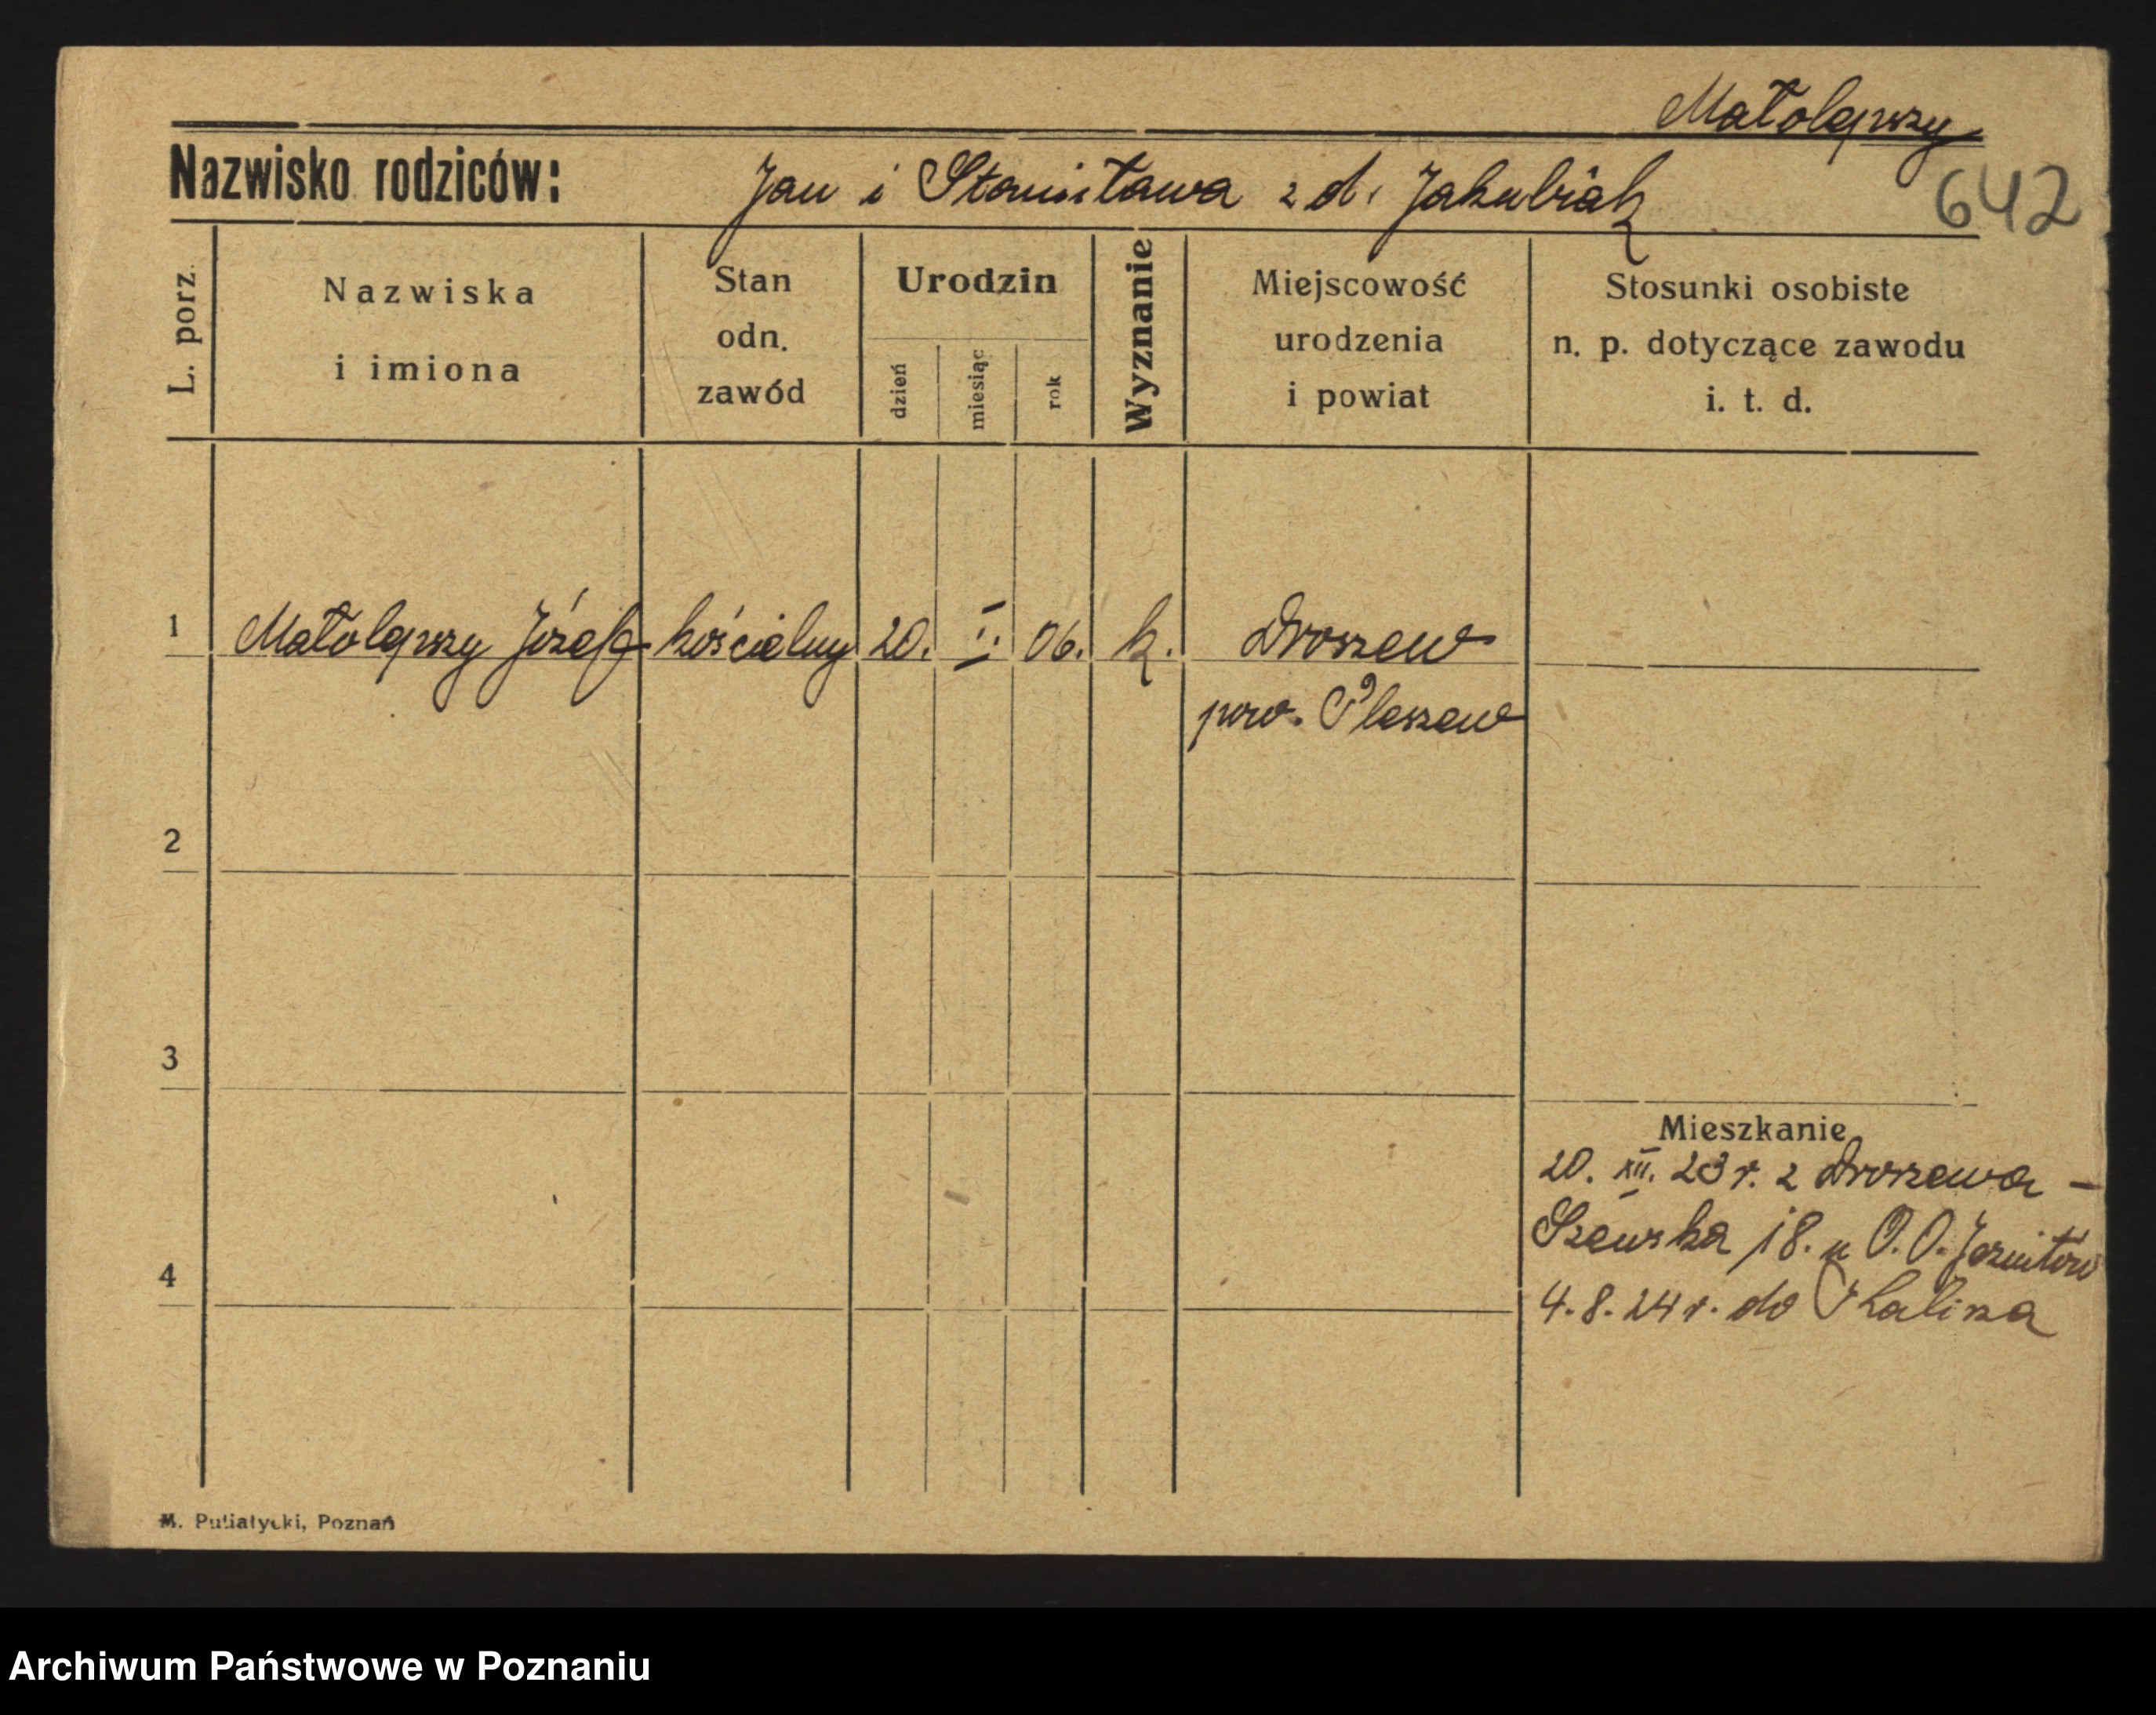 Małolepszy
Nazwisko rodziców: Jan i Stanisława z d. Jakubiak
642
L. porz.
Nazwiska
i imiona
Stan
odn.
zawód
Urodzin
dzień
miesiąc
rok
Wyznanie
Miejscowość
urodzenia
i powiat
Stosunki osobiste
n. p. dotyczące zawodu
i. t. d.
1 Małolepszy Józef kościelny 20. I. 06. k. Droszew
pow. Pleszew
2
3
Mieszkanie
20. XII. 23 r. z Droszewa -
Szewska 18. u O.O. Jezuitów
4
4.8.24 r. do Kalisza
M. Putiatycki, Poznań
Archiwum Państwowe w Poznaniu